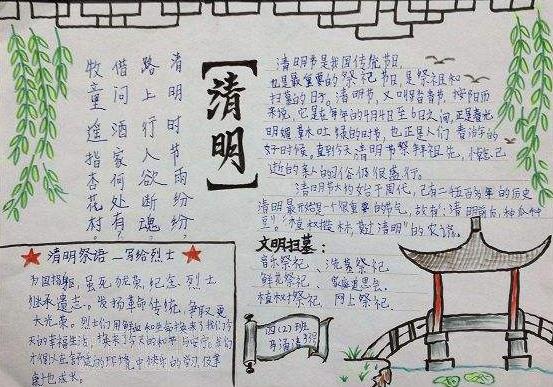 清明时节雨纷纷，
路上行人欲断魂。
借问酒家何处有？
牧童遥指杏花村
【清明】
清明节是我国传统节日，
也是最重要的祭祀节日，是祭祖和
扫墓的日子。清明节，又叫踏青节，按阳历
来说，它是在每年的4月4日至6日之间，正是春光
明媚草木吐绿的时节，也正是人们春游的
好时候，直到今天清明节祭拜祖先，悼念已
逝的亲人的习俗仍很盛行。
清明节大约始于周代，已有二千五百多年的历史
清明最开始是个很重要的节气，故有：清明前后，种瓜种
豆。"植树造林，莫过清明"的农谚。
文明扫墓：
音乐祭祀、洗墓祭祀
鲜花祭祀、家庭追思会
植树祭祀、网上祭祀
四（2）班
清明祭语——写给烈士
为国捐躯，虽死犹荣，纪念烈士
继承遗志。发扬革命传统，争取更
大光荣。烈士们用鲜血和生命换来了我们今
天的幸福生活，换来了今天的和平与安宁。我们
才得以在舒适的环境中快乐的学习，